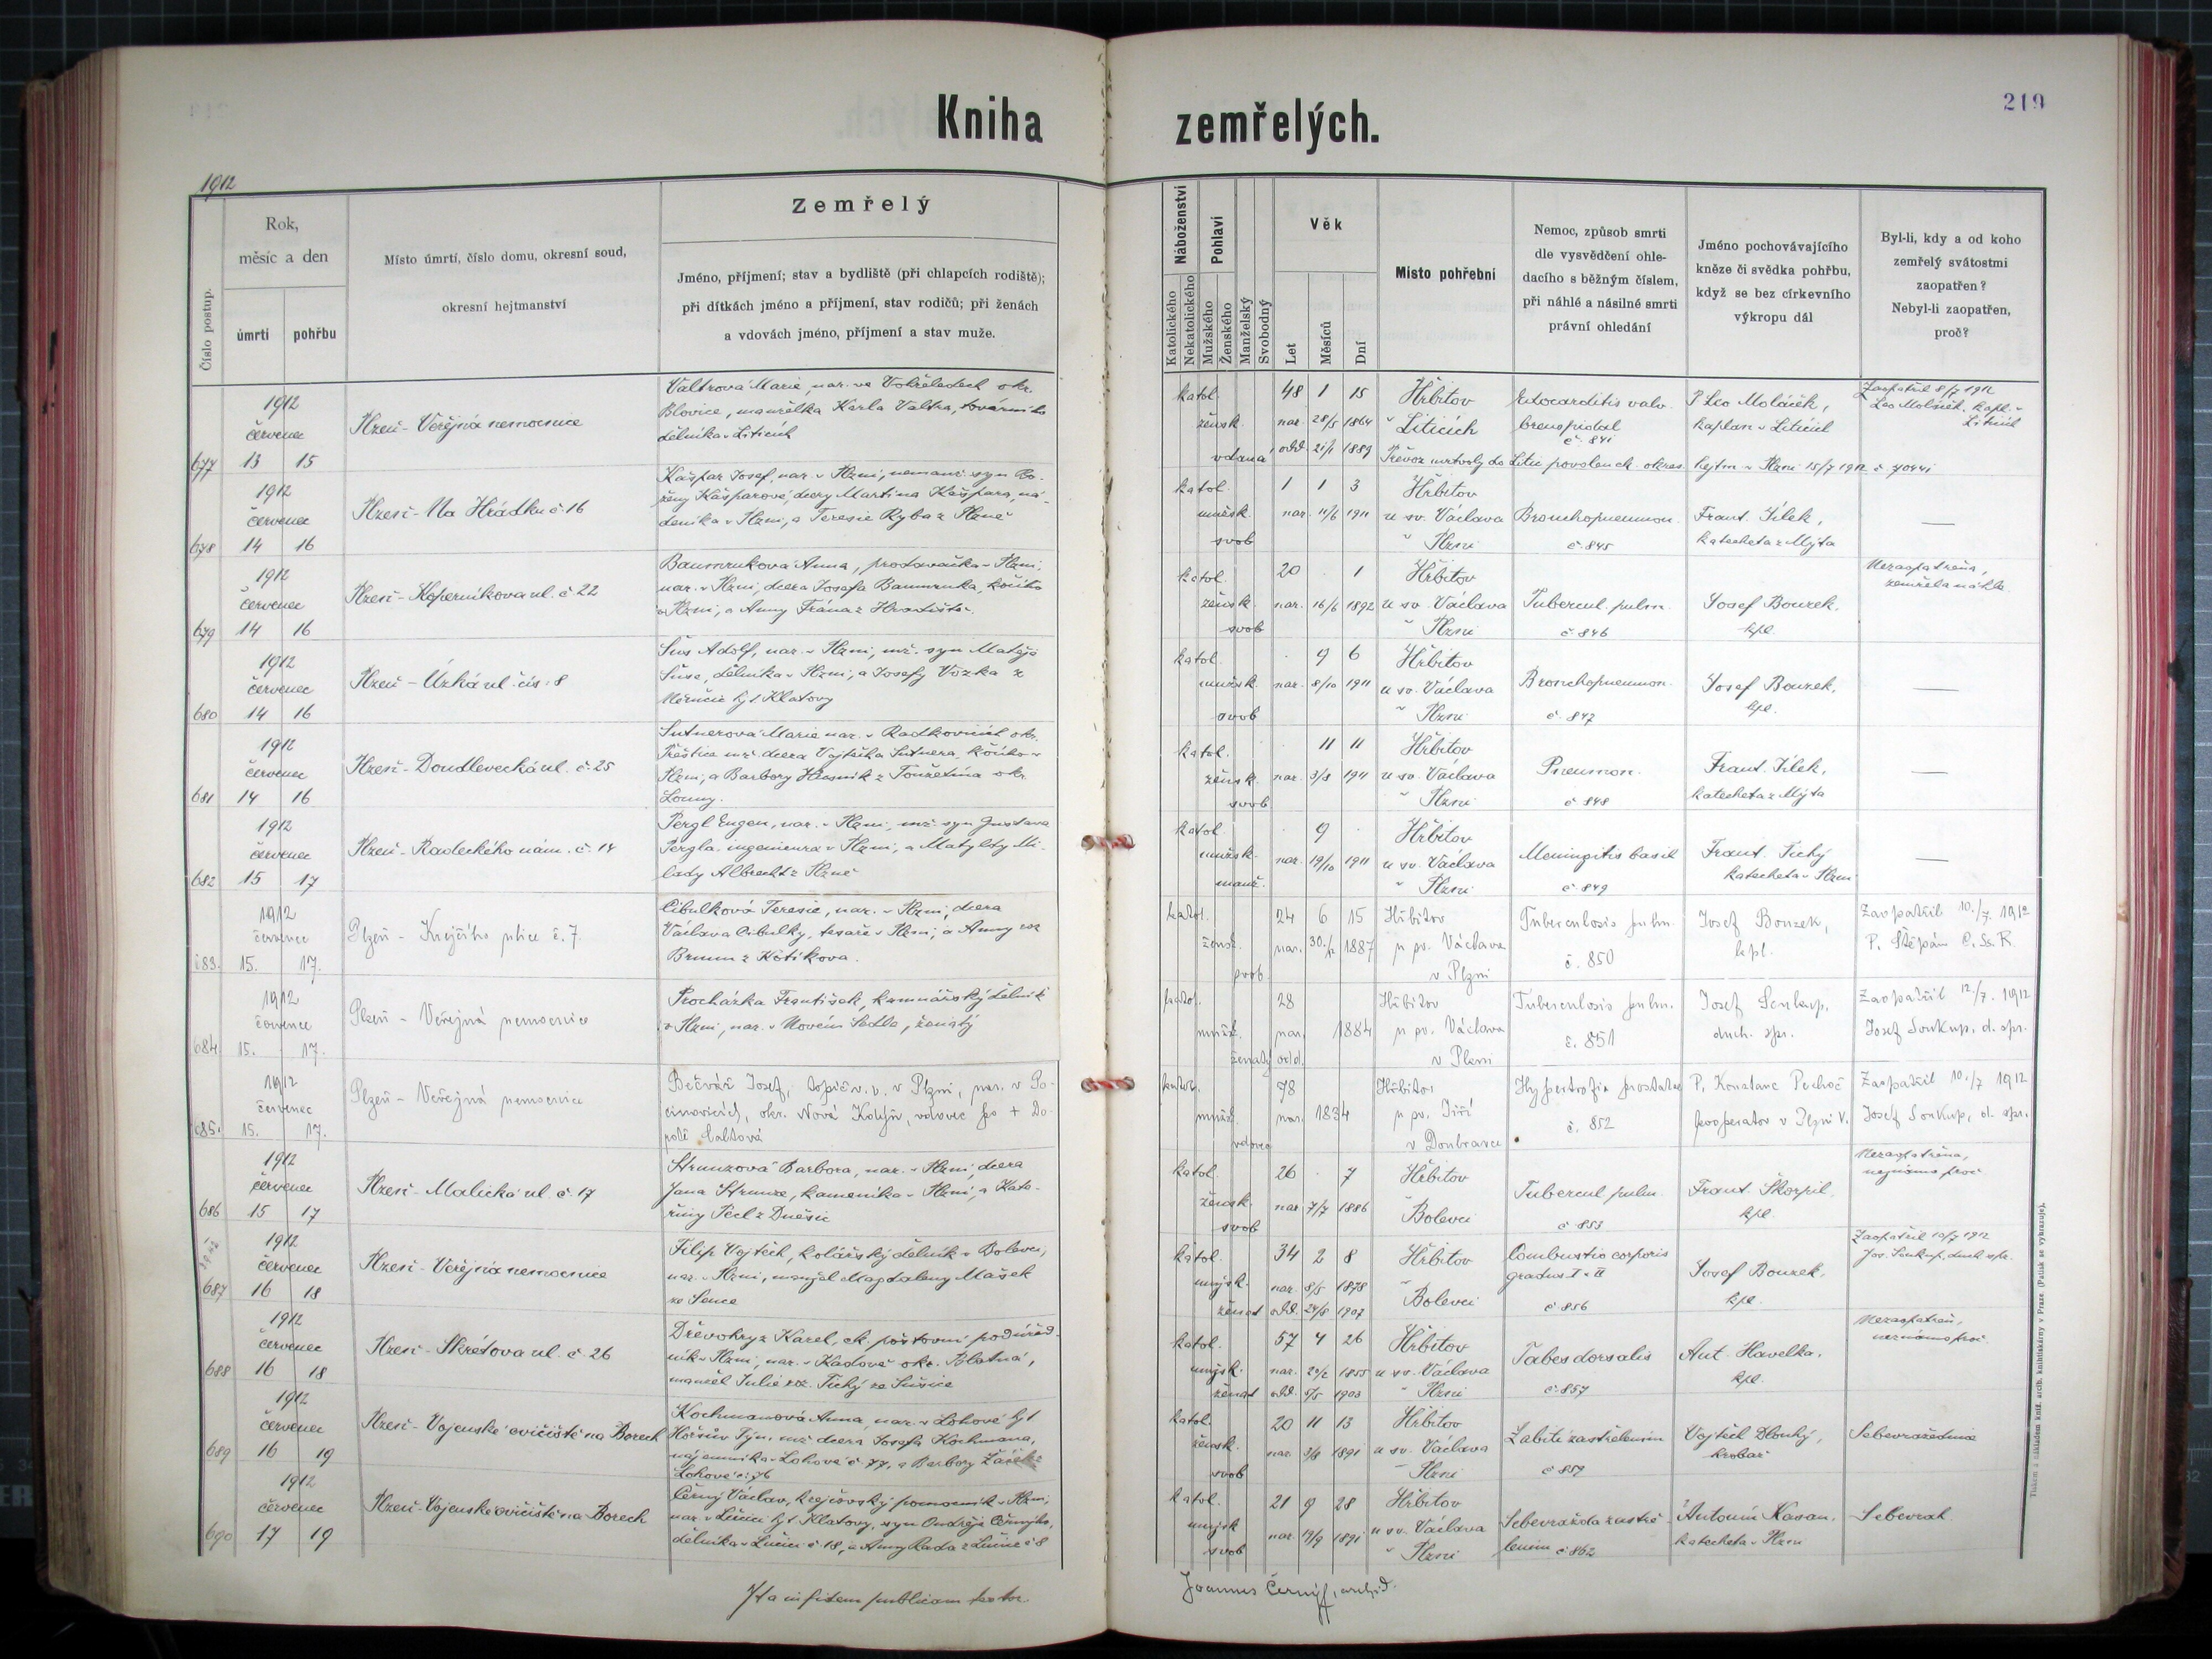 Kniha zemřelých.
219
1912
Číslo postup.
Rok,
měsíc a den
úmrtí
pohřbu
Místo úmrtí, číslo domu, okresní soud,
okresní hejtmanství
Zemřelý
Jméno, příjmení; stav a bydliště (při chlapcích rodiště);
při dítkách jméno a příjmení, stav rodičů; při ženách
a vdovách jméno, příjmení a stav muže.
Náboženství
Katolického
Nekatolického
Pohlaví
Mužského
Ženského
Manželský
Svobodný
Věk
Let
Měsíců
Dní
Místo pohřební
Nemoc, způsob smrti
dle vysvědčení ohle-
dacího s běžným číslem,
při náhlé a násilné smrti
právní ohledání
Jméno pochovávajícího
kněze či svědka pohřbu,
když se bez církevního
výkropu dál
Byl-li, kdy a od koho
zemřelý svátostmi
zaopatřen?
Nebyl-li zaopatřen,
proč?
677
1912
červenec
13 15
Plzeň - Veřejná nemocnice
Valtrová Marie, nar. ve okr.
Blovice, manželka Karla Valtra, továrního
dělníka v Liticích
katol.
žensk.
vdaná
48 1 15
nar. 28/5 1864
odd. 21/1 1889
Hřbitov
v Liticích
č. 841
P. Leo
kaplan v Liticích
Zaopatřil 8/7 1912
Leo kapl. v
Liticích
Převoz mrtvoly do Litic povolen ck. okres. hejtm. v Plzni 15/7 1912 č.
678
1912
červenec
14 16
Plzeň - Na Hrádku č. 16
Kašpar Josef, nar. v Plzni, nemanž. syn Bo-
ženy Kašparové, dcery Martina Kašpara, ná-
deníka v Plzni, a Teresie Ryba z Plzně
katol.
mužsk.
svob
1 1 3
nar. 11/6 1911
Hřbitov
u sv. Václava
v Plzni
Bronchopneumon.
č. 845
Frant. Jílek,
katecheta z Mýta
—
679
1912
červenec
14 16
Plzeň - Koperníkova ul. č. 22
Baumrukova Anna, prodavačka v Plzni,
nar. v Plzni, dcera Josefa Baumruka, kočího
v Plzni, a Anny z Hradiště.
katol.
žensk.
svob
20 . 1
nar. 16/6 1892
Hřbitov
u sv. Václava
v Plzni
Tubercul. pulm.
č. 846
Josef Bouzek,
kpl.
Nezaopatřena,
zemřela náhle.
680
1912
červenec
14 16
Plzeň - Úzká ul. čís. 8
Šus Adolf, nar. v Plzni, mž. syn Matěje
Šuse, dělníka v Plzni, a Josefy Vozka z
hjt. Klatovy
katol.
mužsk.
svob
. 9 6
nar. 8/10 1911
Hřbitov
u sv. Václava
v Plzni
Bronchopneumon.
č. 847
Josef Bouzek,
kpl.
—
681
1912
červenec
14 16
Plzeň - Doudlevecká ul. č. 25
Sutnerova Marie nar. v Radkovicích okr.
Přeštice mž. dcera Vojtěcha Sutnera, kočího v
Plzni, a Barbory z okr.
Louny.
katol.
žensk.
svob
. 11 11
nar. 3/8 1911
Hřbitov
u sv. Václava
v Plzni
Pneumon.
č. 848
Frant. Jílek,
katecheta z Mýta
—
682
1912
červenec
15 17
Plzeň - Radeckého nám. č. 14
Pergl Eugen, nar. v Plzni, mž. syn Gustava
Pergla, ingenieura v Plzni, a Matyldy Mi-
lady Albrecht z Plzně
katol.
mužsk.
manž.
. 9 .
nar. 19/10 1911
Hřbitov
u sv. Václava
v Plzni
Meningitis basil
č. 849
Frant. Tichý
katecheta v Plzni
—
683.
1912
červenec
15. 17.
Plzeň - Krejčího ulice č. 7.
Cibulková Teresie, nar. v Plzni, dcera
Václava Cibulky, tesaře v Plzni, a Anny roz
Brum z Kotíkova.
katol.
žensk.
svob.
24 6 15
nar. 30./12 1887
Hřbitov
u sv. Václava
v Plzni
Tuberculosis pulm.
č. 850
Josef Bouzek,
kpl.
Zaopatřil 10./7. 1912
P. Štěpán C. Ss. R.
684
1912
červenec
15. 17.
Plzeň - Veřejná nemocnice
Procházka František, kamnářský dělník
v Plzni, nar. v Novém Sedle, ženatý
katol.
mužsk.
ženatý
28
nar. 1884
odd.
Hřbitov
u sv. Václava
v Plzni
Tuberculosis pulm.
č. 851
Josef Soukup,
duch. spr.
Zaopatřil 12./7. 1912
Josef Soukup, d. spr.
685.
1912
červenec
15. 17.
Plzeň - Veřejná nemocnice
Bečvář Josef, topič v. v. v Plzni, nar. v Po-
cinovicích, okr. Nová Kdyně, vdovec po + Do-
rotě
katol.
mužsk.
vdovec
78
nar. 1834
Hřbitov
u sv. Jiří
v Doubravce
Hypertrofia prostatae
č. 852
P. Konstanc Pechoč
kooperator v Plzni V.
Zaopatřil 10./7 1912
Josef Soukup, d. spr.
686
1912
červenec
15 17
Plzeň - Malická ul. č. 17
Strunzová Barbora, nar. v Plzni, dcera
Jana Strunze, kameníka v Plzni, a Kate-
řiny Pecl z Dnešic
katol.
žensk.
svob
26 . 7
nar. 7/7 1886
Hřbitov
v Bolevci
Tubercul pulm.
č. 853
Frant. Škorpil,
kpl.
Nezaopatřena,
neznámo proč
687
1912
červenec
16 18
Plzeň - Veřejná nemocnice
Filip Vojtěch, kolářský dělník v Bolevci,
nar. v Plzni, manžel Magdaleny Mašek
ze Sence
katol.
mužsk.
ženat
34 2 8
nar. 8/5 1878
odd. 1907
Hřbitov
v Bolevci
Combustio corporis
gradus I. II
č. 856
Josef Bouzek,
kpl.
Zaopatřil 10/7 1912
Jos. Soukup, duch. spr.
688
1912
červenec
16 18
Plzeň - Skrétova ul. č. 26
Dřevokryz Karel, ck. poštovní podúřed-
ník v Plzni, nar. v Kadově okr. Blatná,
manžel Julie roz. Tichý ze Sušice
katol.
mužsk.
ženat
57 4 26
nar. 20/2 1855
odd. 5/5 1903
Hřbitov
u sv. Václava
v Plzni
Tabes dorsalis
č. 857
Ant. Havelka,
kpl.
Nezaopatřen,
neznámo proč
689
1912
červenec
16 19
Plzeň - Vojenské cvičiště na Borech
Kochmanová Anna, nar. v Lohově hjt
Horšův Týn, mž dcera Josefa Kochmana,
nájemníka v Lohově č. 77, a Barbory z
Lohové č. 76
katol.
žensk.
svob
20 11 13
nar. 3/8 1891
Hřbitov
u sv. Václava
v Plzni
Zabití zastřelením
č. 859
Vojtěch Dlouhý,
hrobař
Sebevražednice
690
1912
červenec
17 19
Plzeň - Vojenské cvičiště na Borech
Černý Václav, krejčovský pomocník v Plzni,
nar. v hjt. Klatovy, syn Ondřeje Černýho,
dělníka v č. 18, a Anny Rada z č. 8
katol.
mužsk
svob
21 9 28
nar. 19/9 1891
Hřbitov
u sv. Václava
v Plzni
Sebevražda zastře-
lením č. 862
Antonín Kavan,
katecheta v Plzni
Sebevrah.
Ita in fidem publicam testor.
Joannes Černý, archid.
Tiskem i nákladem kníž. arcib. knihtiskárny v Praze. (Patisk se vyhrazuje).